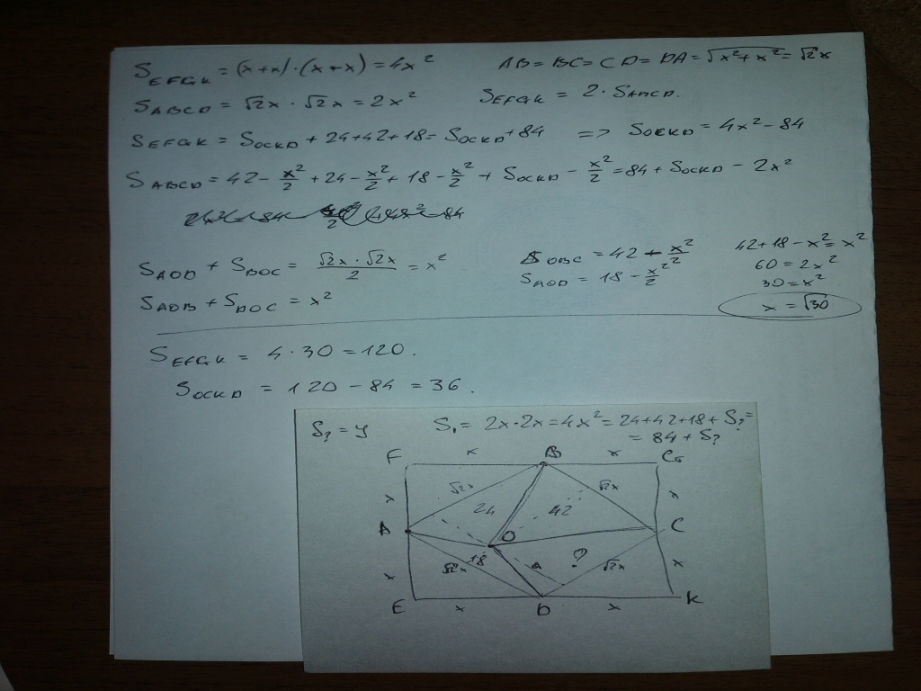 S_EFGK = (x+x)·(x+x) = 4x²
AB = BC = CD = DA = √x²+x² = √2x
S_ABCD = √2x · √2x = 2x²
S_EFGK = 2 · S_ABCD.
S_EFGK = S_OCKD + 24+42+18 = S_OCKD + 84 => S_OCKD = 4x² - 84
S_ABCD = 42 - x²/2 + 24 - x²/2 + 18 - x²/2 + S_OCKD - x²/2 = 84 + S_OCKD - 2x²
S_AOD + S_BOC = √2x · √2x / 2 = x²
S_OBC = 42 - x²/2
42+18 - x² = x²
S_AOB + S_DOC = x²
S_AOD = 18 - x²/2
60 = 2x²
30 = x²
x = √30
S_EFGK = 4 · 30 = 120.
S_OCKD = 120 - 84 = 36.
S? = y
S₁ = 2x · 2x = 4x² = 24+42+18 + S? =
= 84 + S?
F x B x G
x √2x √2x x
24 42
A O C
x 18 ? x
√2x √2x
E x D x K